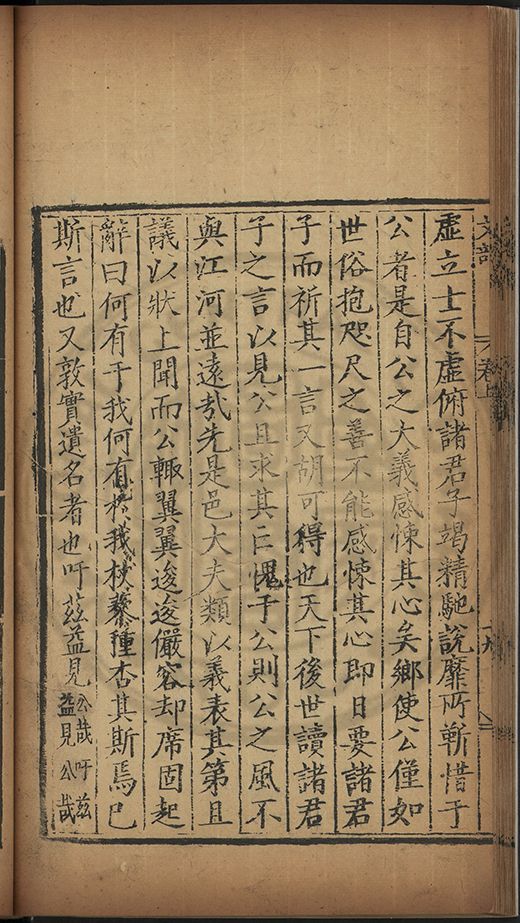 文部 卷上 十九
虛立士不虛俯諸君子竭精馳說靡所靳惜于
公者是自公之大義感悚其心矣鄉使公僅如
世俗抱咫尺之善不能感悚其心即日要諸君
子而祈其一言又胡可得也天下後世讀諸君
子之言以見公且求其亡愧于公則公之風不
與江河並遠哉先是邑大夫類以義表其第且
議以狀上聞而公輙翼翼逡逡儼容却席固起
辭曰何有于我何有於我杖藜種杏其斯焉已
斯言也又敦實遺名者也吁茲益見公哉吁茲
益見公哉